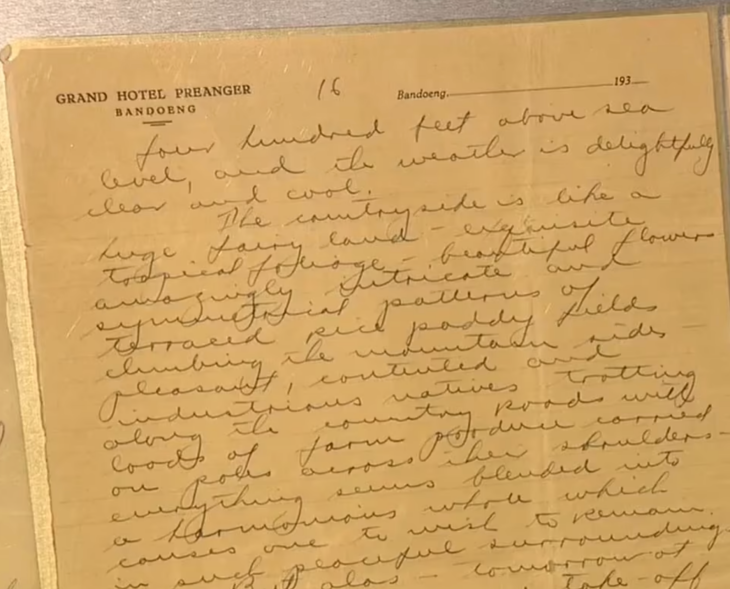 GRAND HOTEL PREANGER
BANDOENG
16
Bandoeng 193
four hundred feet above sea
level, and the weather is delightfully
clear and cool.
The countryside is like a
huge fairy land - exquisite
tropical foliage - beautiful flowers
amazingly intricate and
symmetrical patterns of
terraced rice paddy fields
climbing the mountain sides -
pleasant, contented and
industrious natives trotting
along the country roads with
loads of farm produce carried
on poles across their shoulders -
everything seems blended into
a harmonious whole which
causes one to wish to remain
in such peaceful surroundings.
But alas - tomorrow at
take-off